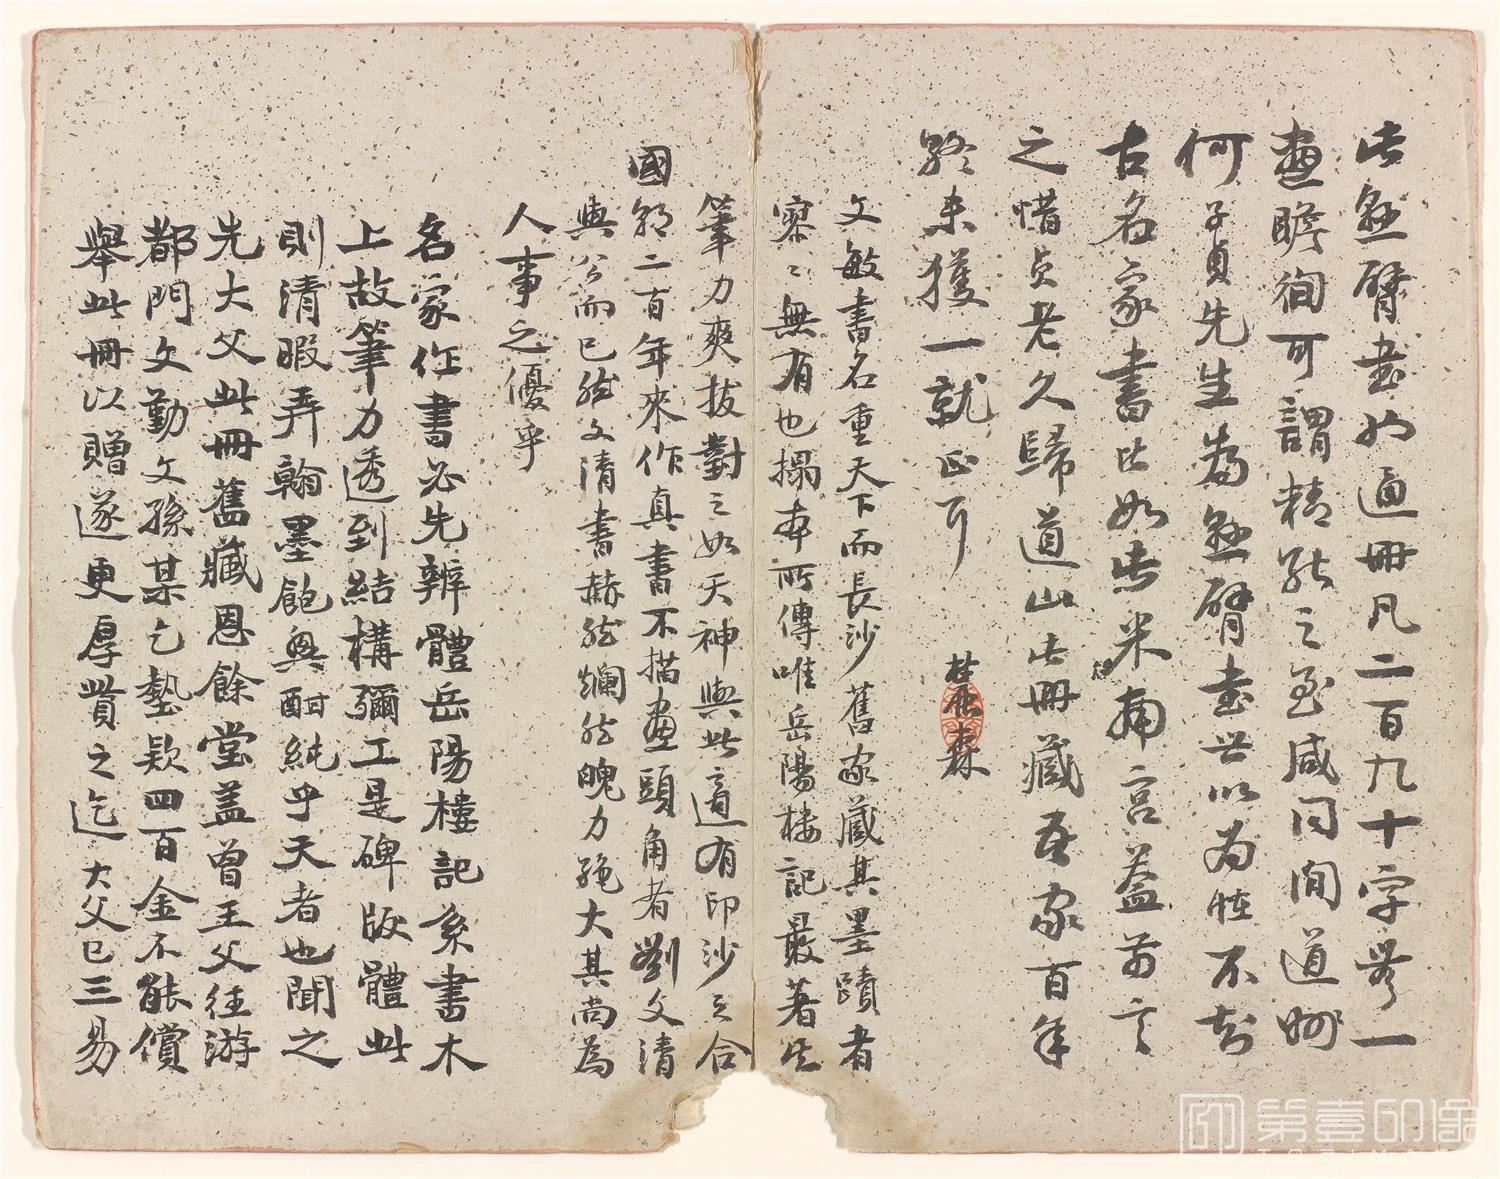 此懸臂書也通冊凡二百九十字無一
畫瞻徇可謂精能之至咸同間道州
何子貞先生為懸臂書世以為怪不知
古名家書皆如此米南宮蓋嘗言
之惜貞老久歸道山此冊藏吾家百年
終未獲一就正耳
森
文敏書名重天下而長沙舊家藏其墨蹟者
寥寥無有也搨本所傳唯岳陽樓記最著其
筆力爽拔對之如天神與此適有印沙之合
國朝二百年來作真書不描畫頭角者劉文清
與公而已然文清書赫然斕然魄力絶大其尚為
人事之優乎
名家作書必先辨體岳陽樓記系書木
上故筆力透到結構彌工是碑版體此
則清暇弄翰墨飽興酣純乎天者也聞之
先大父此冊舊藏恩餘堂蓋曾王父往游
都門文勤文孫某乞墊款四百金不能償
舉此冊以贈遂更厚貲之迄大父已三易
第壹印像